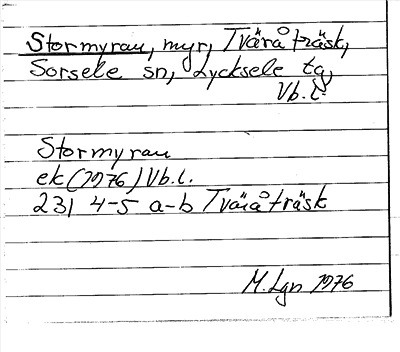 Stormyrau, myr, Tväråträsk,
Sorsele sn, Lycksele tg,
Vb.l.
Stormyrau
ek (1976) Vb.l.
231 4-5 a-b Tväråträsk
M. Lgn 1976